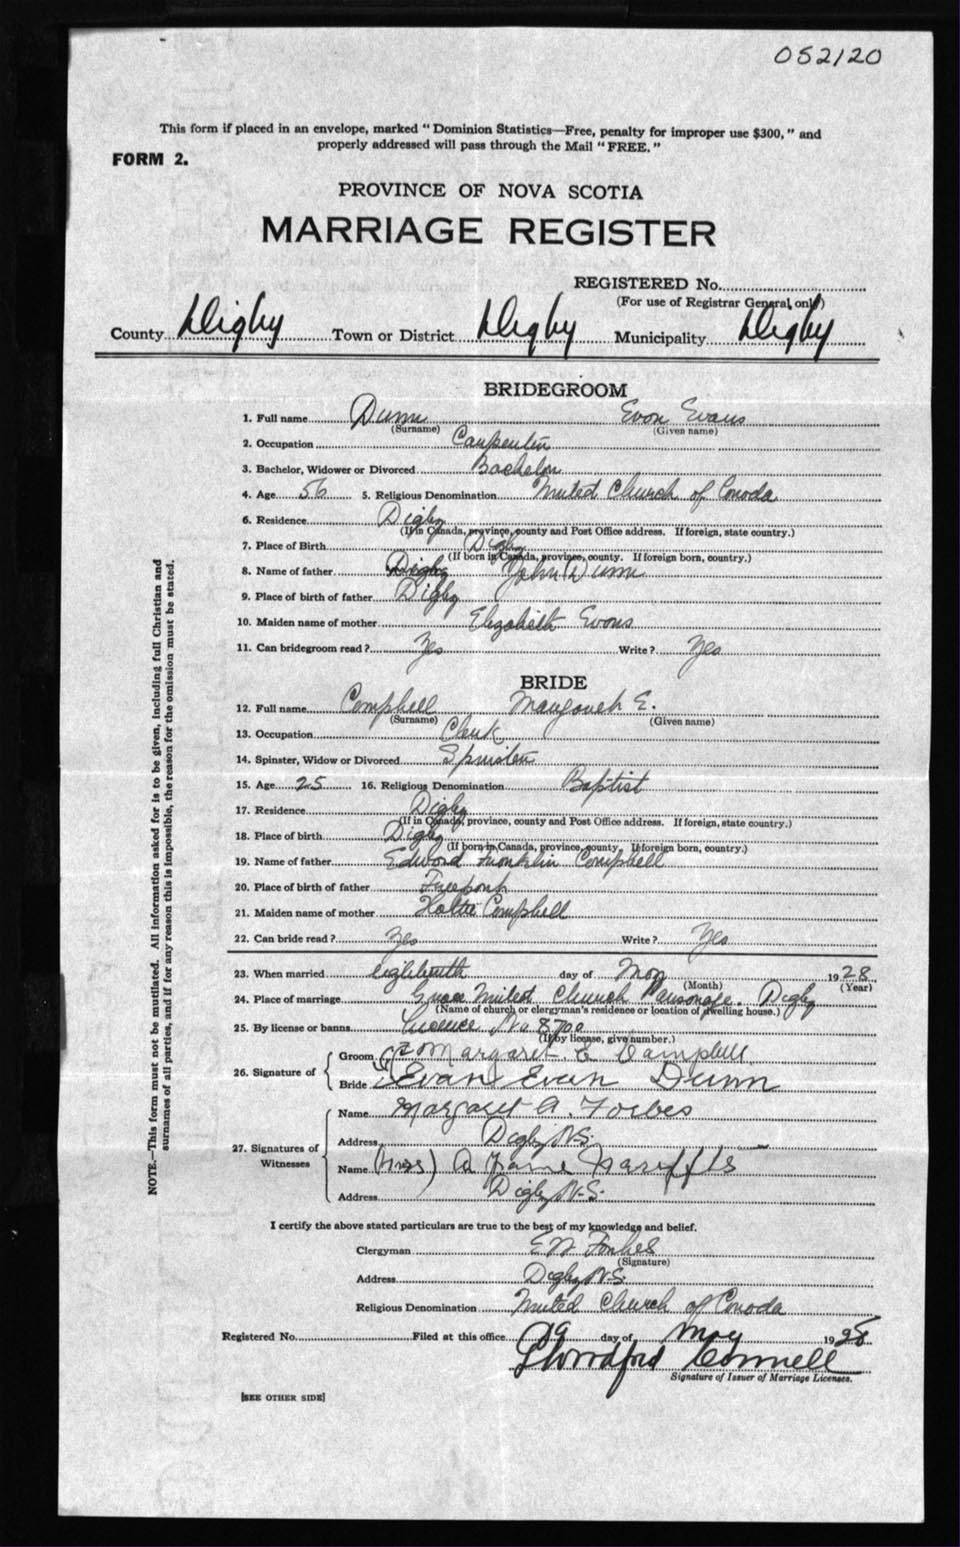 052120
This form if placed in an envelope, marked "Dominion Statistics—Free, penalty for improper use $300," and
properly addressed will pass through the Mail "FREE."
FORM 2.
PROVINCE OF NOVA SCOTIA
MARRIAGE REGISTER
REGISTERED No.
(For use of Registrar General only)
County Digby Town or District Digby Municipality Digby
BRIDEGROOM
1. Full name Dunn Evan Evans
(Surname) (Given name)
2. Occupation Carpenter
3. Bachelor, Widower or Divorced Bachelor
4. Age 56 5. Religious Denomination United Church of Canada
6. Residence Digby
(If in Canada, province, county and Post Office address. If foreign, state country.)
7. Place of Birth Digby
(If born in Canada, province, county. If foreign born, country.)
8. Name of father Digby John Dunn
9. Place of birth of father Digby
10. Maiden name of mother Elizabeth Evans
11. Can bridegroom read? Yes Write? Yes
BRIDE
12. Full name Campbell Margaret E.
(Surname) (Given name)
13. Occupation Clerk
14. Spinster, Widow or Divorced Spinster
15. Age 25 16. Religious Denomination Baptist
17. Residence Digby
(If in Canada, province, county and Post Office address. If foreign, state country.)
18. Place of birth Digby
(If born in Canada, province, county. If foreign born, country.)
19. Name of father Edward Franklin Campbell
20. Place of birth of father Freeport
21. Maiden name of mother Campbell
22. Can bride read? Yes Write? Yes
23. When married eighteenth day of May 1928
(Month) (Year)
24. Place of marriage Grace United Church Parsonage. Digby
(Name of church or clergyman's residence or location of dwelling house.)
25. By license or banns Licence No 8700
(If by license, give number.)
26. Signature of
Groom Margaret E Campbell
Bride Evan Evan Dunn
27. Signatures of Witnesses
Name Margaret A. Forbes
Address Digby N.S.
Name (Miss) A
Address Digby N.S.
I certify the above stated particulars are true to the best of my knowledge and belief.
Clergyman E W Forbes
(Signature)
Address Digby N.S.
Religious Denomination United Church of Canada
Registered No. Filed at this office 19 day of May 1928
Connell
Signature of Issuer of Marriage Licenses.
[SEE OTHER SIDE]
NOTE.—This form must not be mutilated. All information asked for is to be given, including full Christian and
surnames of all parties, and if for any reason this is impossible, the reason for the omission must be stated.